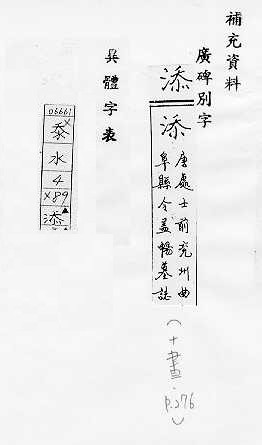 補充資料
廣碑別字
添
添
唐處士前兖州曲
阜縣令蓋暢墓誌
(十畫.p.276)
異體字表
06661
㤗
水
4
×89
添